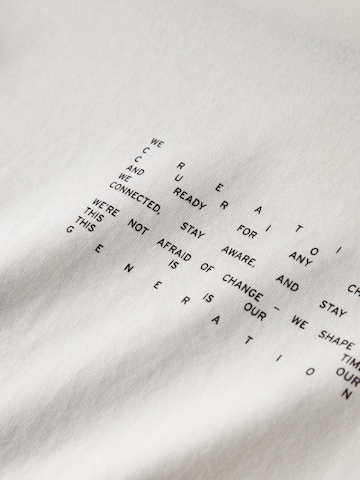 WE
C R E A T
C U R I O
AND READY FOR ANY CH
WE
CONNECTED, STAY AWARE. AND STAY
WE'RE NOT AFRAID OF CHANGE – WE SHAPE
THIS IS OUR TIM
THIS IS OUR
G E N E R A T I O N